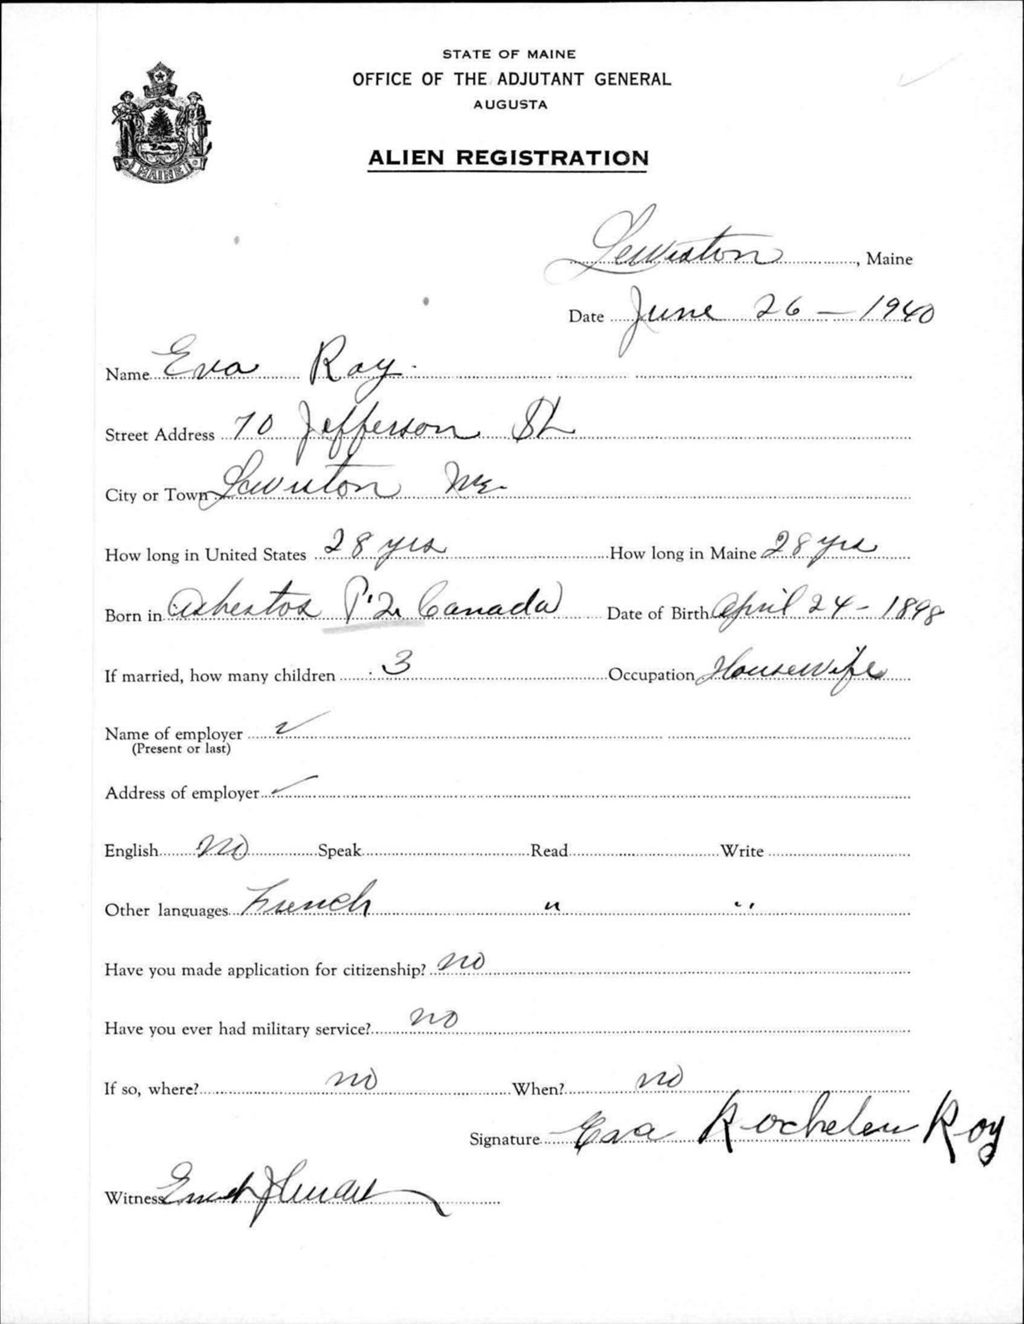 STATE OF MAINE
OFFICE OF THE ADJUTANT GENERAL
AUGUSTA
ALIEN REGISTRATION
MAINE
Lewiston, Maine
Date June 26 - 1940
Name Eva Roy.
Street Address 70 Jefferson St
City or Town Lewiston Me.
How long in United States 28 yrs How long in Maine 28 yrs
Born in Asbestos P.Q. Canada Date of Birth April 24 - 1898
If married, how many children 3 Occupation Housewife
Name of employer ✓
(Present or last)
Address of employer ✓
English no Speak Read Write
Other languages French " "
Have you made application for citizenship? no
Have you ever had military service? no
If so, where? no When? no
Signature Eva Rocheleu Roy
Witness